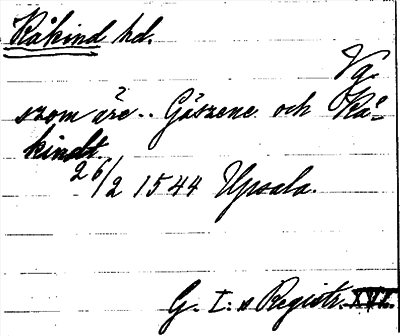 Kåkind hd.
Vg.
som äre.. Gåszene och Kå-
kindt
26/2 1544 Upsala.
G. I:s Registr. XVI.